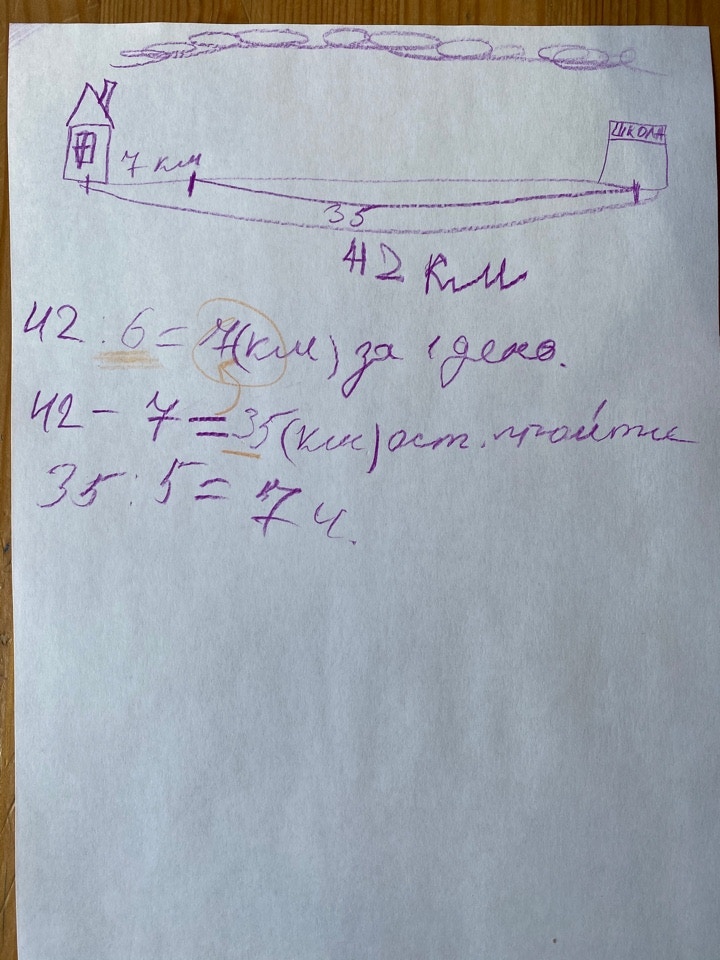 ШКОЛА
7 км
35
42 км
42 : 6 = 7(км) за 1 день.
42 - 7 = 35(км) ост. пройти
35 : 5 = 7 ч.